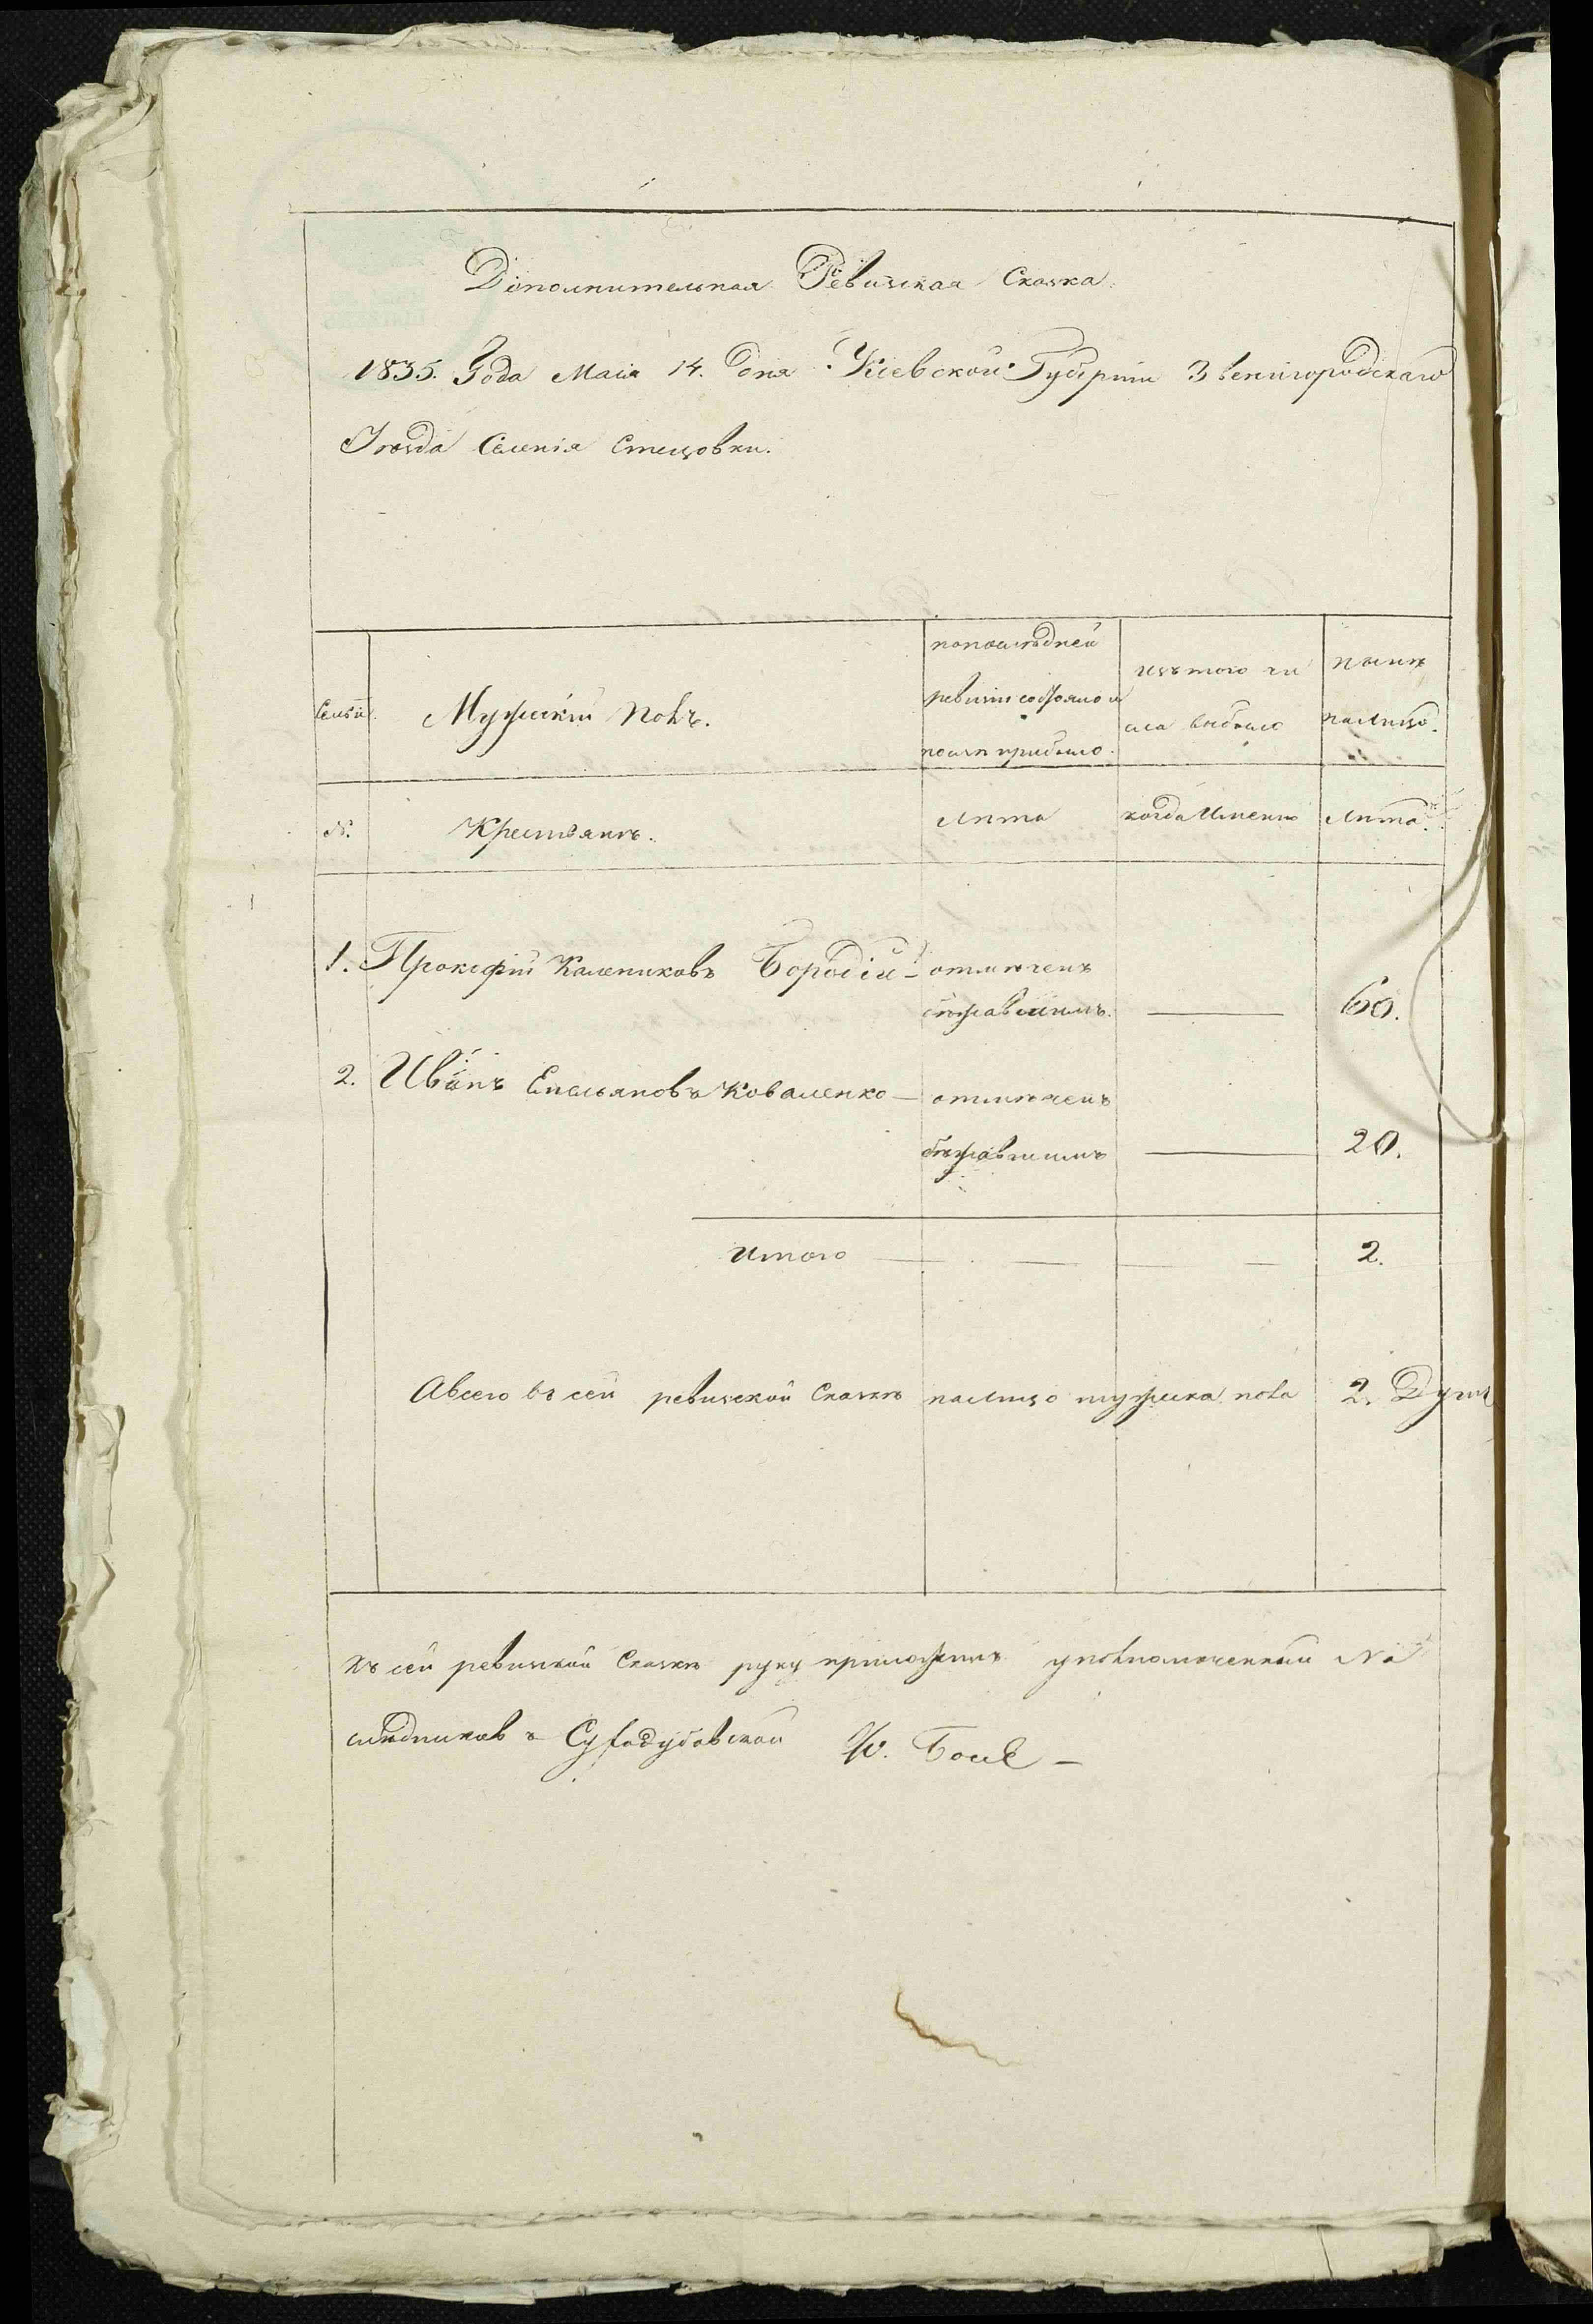 Дополнительная Ревизская Сказка.
1835. Года Маія 14. дня Кіевской Губерніи Звенигородскаго
Уѣзда Селенія Стецовки.
Семьи. Мужескій полъ. попослѣдней ревизіи состояло и послѣ прибыло. изътого числа выбыло нынѣ налицо.
№. Крестьянъ. лѣта когда Именно лѣта.
1. Прокофій Калениковъ Бородій - отмѣченъ
бѣжавшимъ. 60.
2. Иванъ Емельяновъ Коваленко - отмѣченъ
бѣжавшимъ 20.
Итого 2.
Авсего въ сей ревизской Сказкѣ налицо мужеска пола 2. Душ
Къ сей ревизской Сказкѣ руку приложилъ уполномоченный На
слѣдниковъ